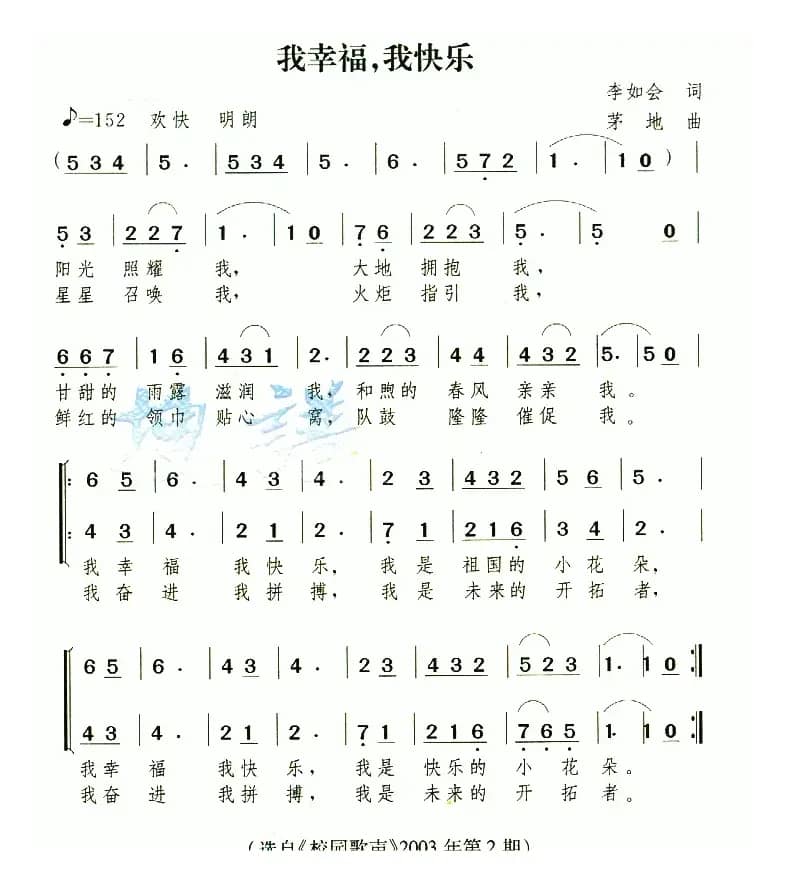 我幸福,我快乐
李如会 词
♪=152 欢快 明朗
茅 地 曲
( 5 3 4 | 5 · | 5 3 4 | 5 · | 6 · | 5 7 2 | 1 · | 1 0 ) |
5 3 | 2 2 7 | 1 · | 1 0 | 7 6 | 2 2 3 | 5 · | 5 0 |
阳光 照耀 我, 大地 拥抱 我,
星星 召唤 我, 火炬 指引 我,
6 6 7 | 1 6 | 4 3 1 | 2 · | 2 2 3 | 4 4 | 4 3 2 | 5 · | 5 0 |
甘甜的 雨露 滋润 我, 和煦的 春风 亲亲 我。
鲜红的 领巾 贴心 窝, 队鼓 隆隆 催促 我。
: 6 5 | 6 · | 4 3 | 4 · | 2 3 | 4 3 2 | 5 6 | 5 · |
: 4 3 | 4 · | 2 1 | 2 · | 7 1 | 2 1 6 | 3 4 | 2 · |
我幸 福 我快 乐, 我是 祖国的 小花 朵,
我奋 进 我拼 搏, 我是 未来的 开拓 者,
6 5 | 6 · | 4 3 | 4 · | 2 3 | 4 3 2 | 5 2 3 | 1 · | 1 0 :|
4 3 | 4 · | 2 1 | 2 · | 7 1 | 2 1 6 | 7 6 5 | 1 · | 1 0 :|
我幸 福 我快 乐, 我是 快乐的 小花 朵。
我奋 进 我拼 搏, 我是 未来的 开拓 者。
(选自《校园歌声》2003年第2期)